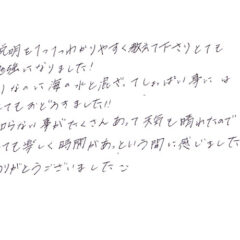 説明を1つ1つわかりやすく教えて下さりとても
勉強になりました!
なのに海の水と混ざってしょっぱい事には
てもおどろきました!!
知らない事がたくさんあって天気も晴れたので
ても楽しく時間があっという間に感じました
りがとうございました